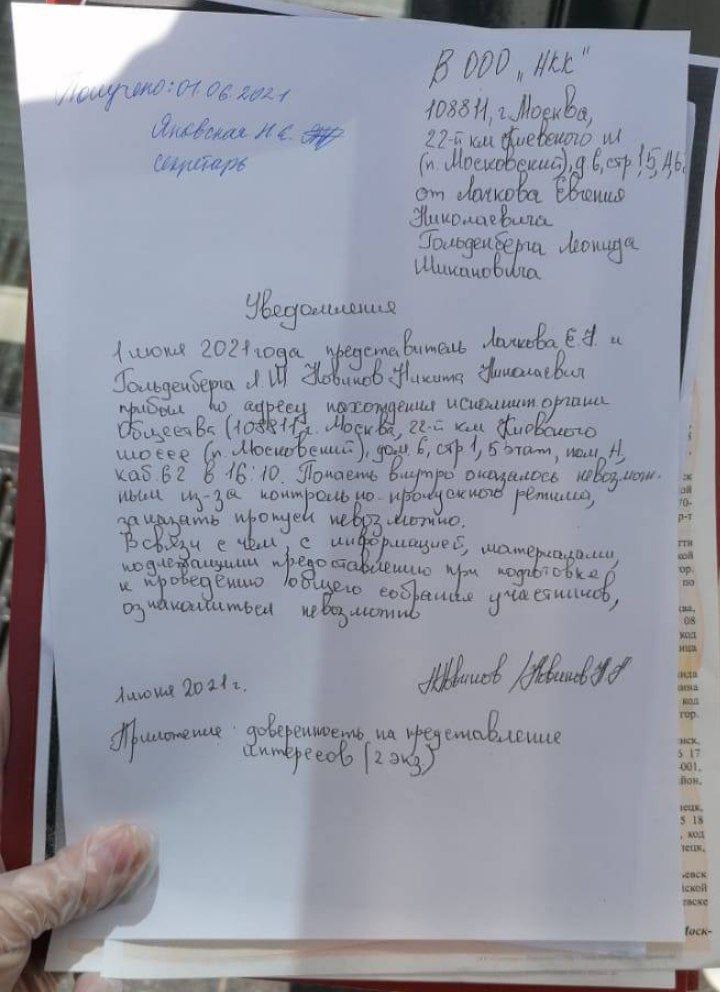 Получено: 01.06.2021
Яновская Н.С.
секретарь
В ООО „НКК"
108811, г. Москва,
22-й км Киевского ш
(п. Московский), д 6, стр 1, 5,
от Лачкова Евгения
Николаевича
Гольденберга Леонида
Шикановича
Уведомления
1 июня 2021 года представитель Лачкова Е.Н. и
Гольденберга Л.Ш Новиков Никита Николаевич
прибыл по адресу нахождения исполнит. органа
Общества (108811, г. Москва, 22-й км Киевского
шоссе (п. Московский), дом. 6, стр 1, 5 этаж, пом, Н,
каб. 62 в 16:10. Попасть внутрь оказалось невозмож-
ным из-за контрольно-пропускного режима,
заказать пропуск невозможно.
В связи с чем, с информацией, материалами,
подлежащими предоставлению при подготовке
к проведению общего собрания участников,
ознакомиться невозможно
1 июня 2021 г.
ННовиков /Новиков Н Н
Приложение: доверенность на представление
интересов (2 экз.)